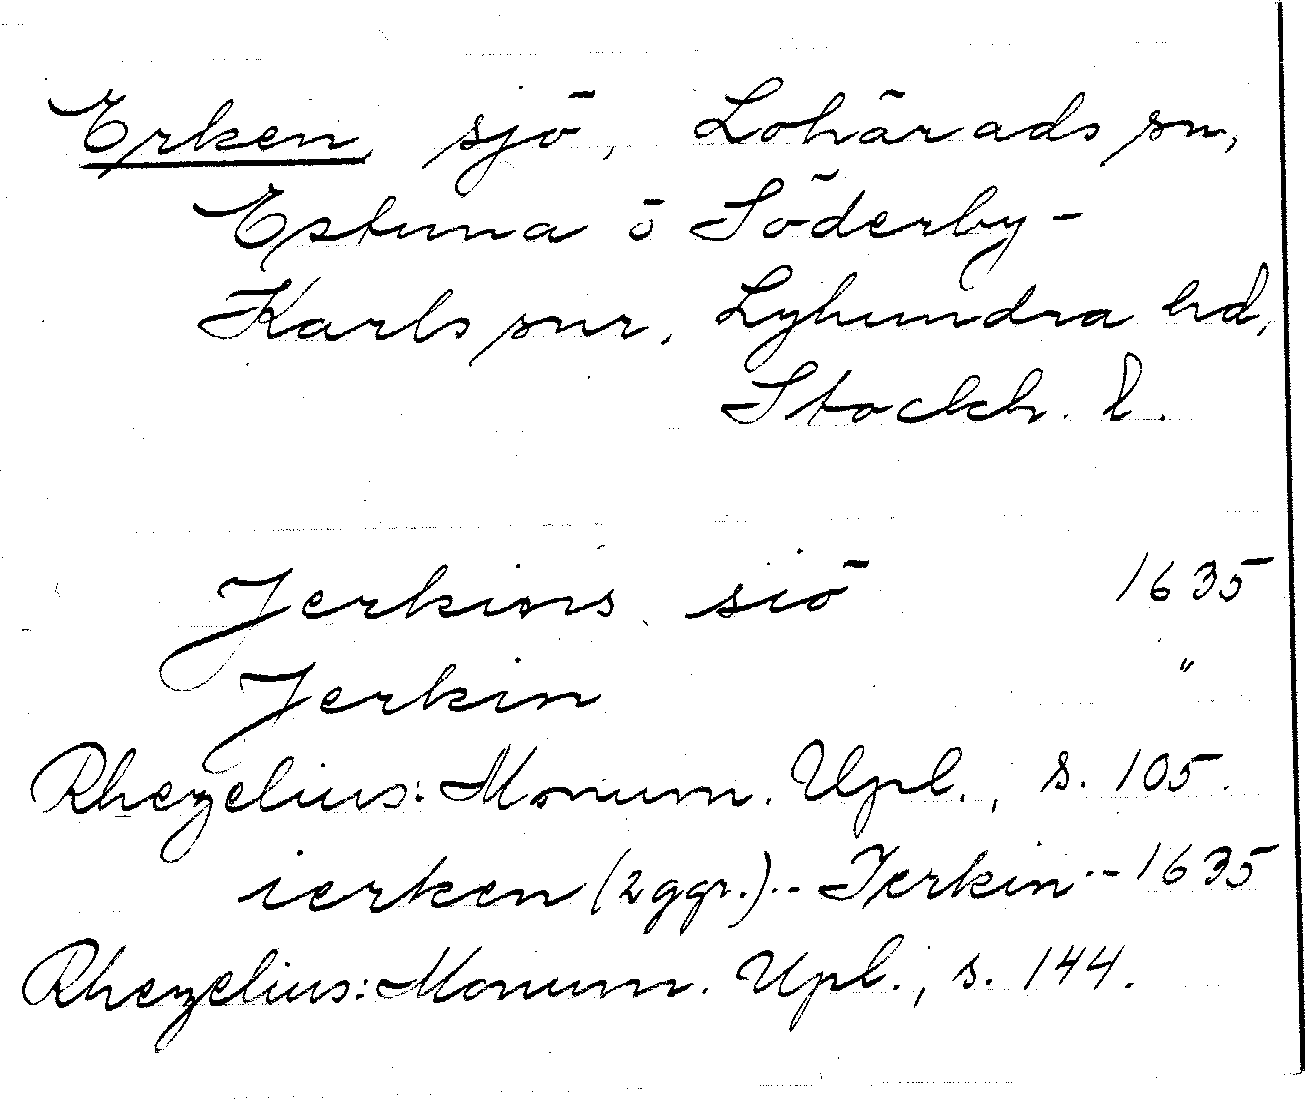 Erken, sjö, Lohärads sn,
Estuna o Söderby-
Karls snr, Lyhundra hd,
Stockh. l.
Jerkins siö 1635
Jerkin "
Rhezelius: Monum. Upl., s. 105.
ierken (2 ggr.) -- Jerkin -- 1635
Rhezelius: Monum. Upl., s. 144.